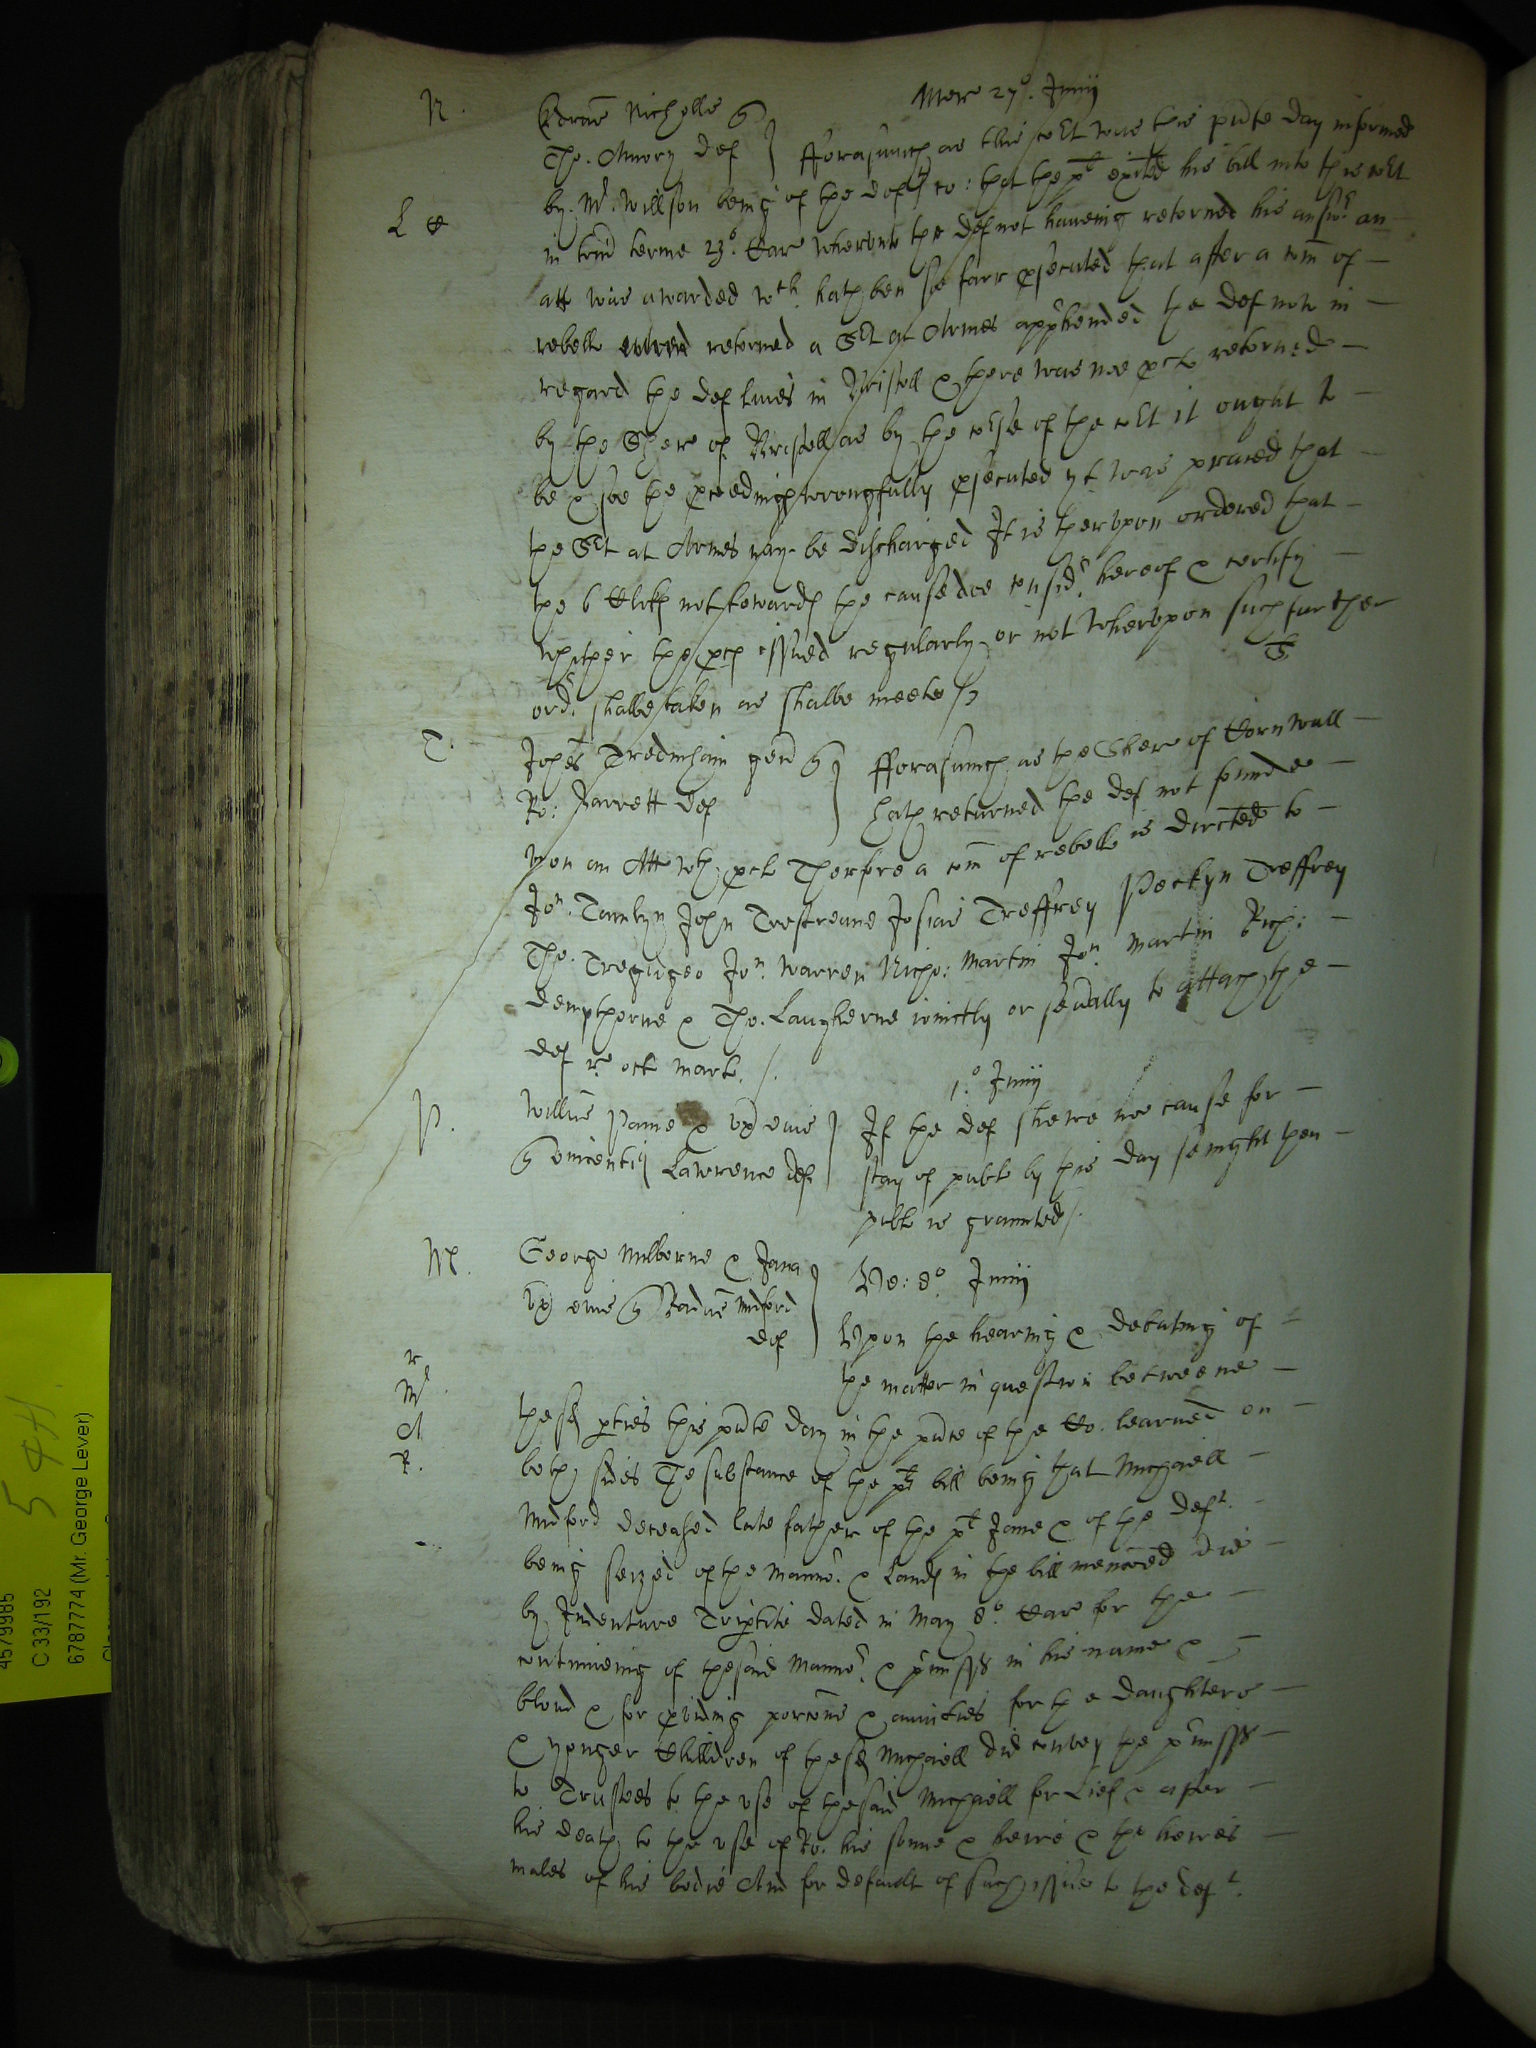 Mer 27o. Junij
N. Edrūs Nicholls q
Tho. Amory def } fforasmuch as this Cort was this pn̄te day informed
by Mr. Willson being of the defts co: that the plt exited his bill into this Cort
L C in trin̄ terme 23o. Car wherunto the def not haueing retorned his answr an
att was awarded wch. hath ben soe farr psecuted that after a com̄ of
rebello retorned a Sert at Armes apphended the def now in
regard the def liues in Bristoll & there was noe pclo retorned
by the Shere of Bristoll as by the corse of the cort it ought to
be & soe the pceedings wrongfully psecuted yt was praied that
the Sert at Armes may be discharged It is therupon ordered that
the 6 Clks not towards the cause doe consider hereof & certify
whither the pces issued regularly or not Wherupon such further
ordr. shalbe taken as shalbe meete
T. Johēs Tredinham gen̄ q } fforasmuch as the Shere of Cornwall
Ro: Jarrett def } hath returned the def not founde
vpon an Att wth pclo Therfore a com̄ of rebello is directed to
Jon. Tamlyn John Trestreane Josias Treffrey Peerkyn Treffrey
Tho. Tregligeo Jon. Warren Nicho: Martin Jon Martin Rich:
Dempthorne & Tho. Laugherne iointly or seuāly to attach the
def re oct mart.
1.o Junij
P. Willūs Paine & vx eius } If the def shewe noe cause for
q Vincentiū Lawrence def } stay of publ by this day senight then
publ is graunted
M. George Milborne & Jana } Ve: 8o Junij
vx eius q Radūs Midford
def } Vpon the hearing & debating of
the matter in question betweene
r
Mr.
A
R.
these pties this pn̄te day in the pn̄ce of the Co. learned on
both sides The substance of the plts bill being that Michaell
Midford deceased late father of the plt Jane & of the deft.
being seized of the Mannor. & Lands in the bill menc̄oed did
by Indenture Tripartite dated in May 8o. Car for the
continueing of thesaid Mannor. & pmisss in his name &
bloud & for pviding porc̄ons & anuities for the daughters
& yonger Children of the sd Michaell did convey the pmisss
to Trustees to the vse of thesaid Michaell for Lief & after
his death to the vse of Ro. his sonne & heire & the heires
males of his bodie And for default of such issue to the deft.
5 4H
4579985
C 33/192
6787774 (Mr. George Lever)